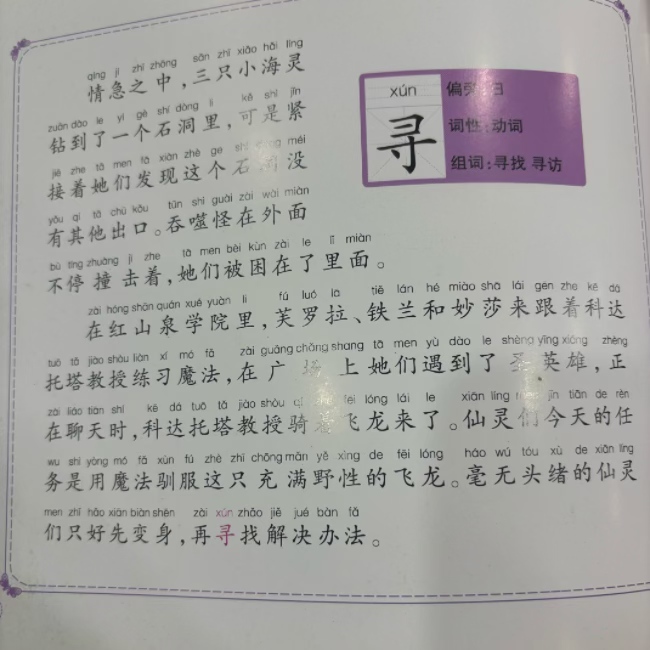 qíng jí zhī zhōng sān zhī xiǎo hǎi líng
情急之中，三只小海灵
zuān dào le yí gè shí dòng lǐ kě shì jǐn
钻到了一个石洞里，可是紧
jiē zhe tā men fā xiàn zhè ge shí dòng méi
接着她们发现这个石洞没
yǒu qí tā chū kǒu tūn shì guài zài wài miàn
有其他出口。吞噬怪在外面
bù tíng zhuàng jī zhe tā men bèi kùn zài le lǐ miàn
不停撞击着，她们被困在了里面。
xún
寻
偏旁：彐
词性：动词
组词：寻找 寻访
zài hóng shān quán xué yuàn lǐ fú luó lā tiě lán hé miào shā lái gēn zhe kē dá
在红山泉学院里，芙罗拉、铁兰和妙莎来跟着科达
tuō tǎ jiào shòu liàn xí mó fǎ zài guǎng chǎng shang tā men yù dào le shèng yīng xióng zhèng
托塔教授练习魔法，在广场上她们遇到了圣英雄，正
zài liáo tiān shí kē dá tuō tǎ jiào shòu qí fēi lóng lái le xiān líng men jīn tiān de rèn
在聊天时，科达托塔教授骑着飞龙来了。仙灵们今天的任
wu shì yòng mó fǎ xùn fú zhè zhī chōng mǎn yě xìng de fēi lóng háo wú tóu xù de xiān líng
务是用魔法驯服这只充满野性的飞龙。毫无头绪的仙灵
men zhǐ hǎo xiān biàn shēn zài xún zhǎo jiě jué bàn fǎ
们只好先变身，再寻找解决办法。